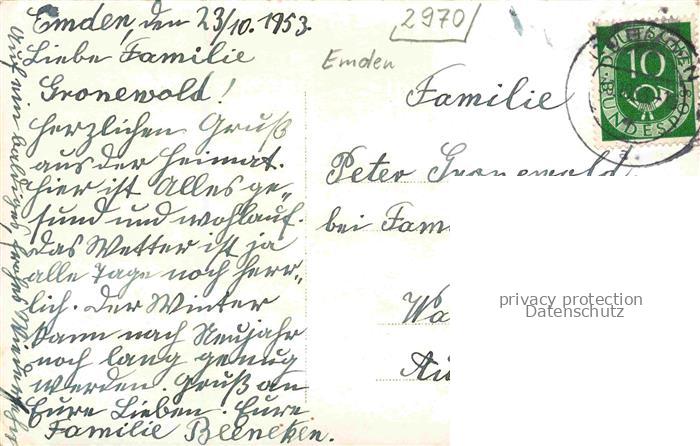 Emden, den 23/10. 1953.
Liebe Familie
Gronewold!
Herzlichen Gruß
aus der Heimat.
Hier ist Alles ge„
sund und wohlauf.
Das Wetter ist ja
alle Tage noch herr„
lich. Der Winter
kann nach Neujahr
noch lang genug
werden. Gruß an
Eure Lieben. Eure
Familie Beeneken.
Auf ein baldiges, frohes Wiedersehn
2970
Emden
Familie
Peter Gronewold,
bei Fam
Wa
DEUTSCHE
10
BUNDESPOST
a
privacy protection
Datenschutz